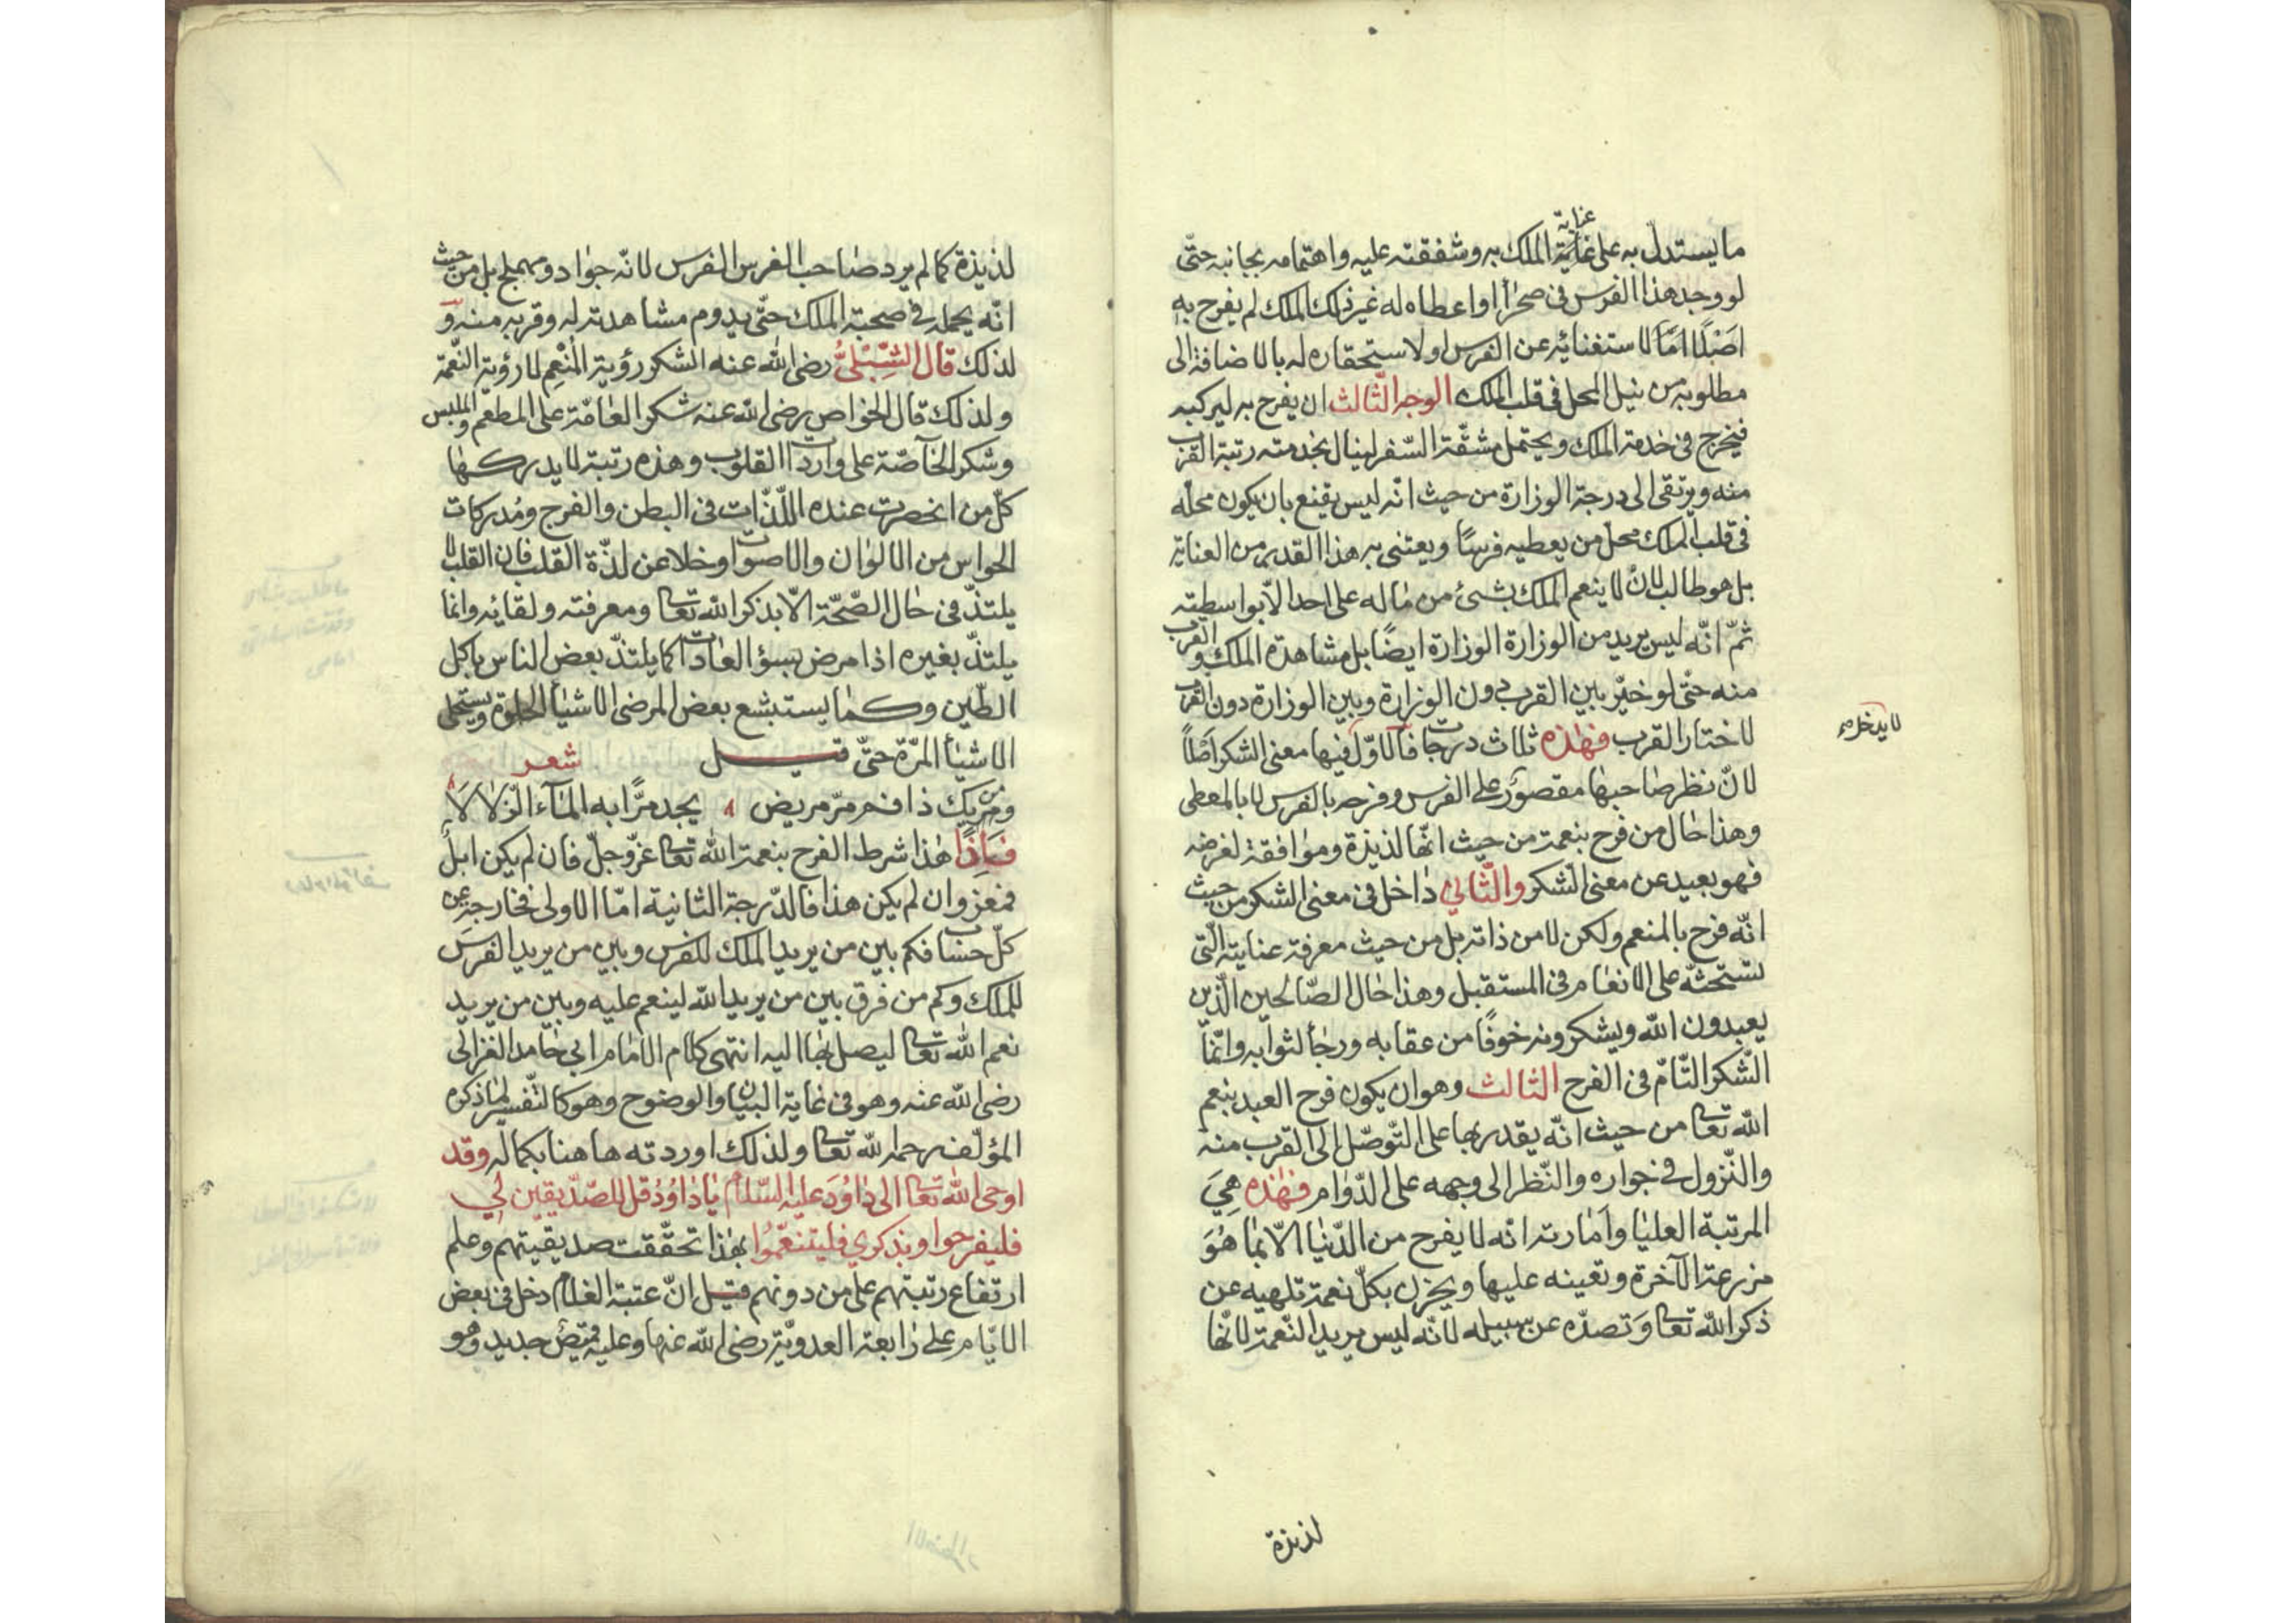 ما يستدل به على عناية الملك به وشفقته عليه واهتمامه بجانبه حتّى
لو وجد هذا الفرس فى صحرٰا او اعطاه له غير ذلك الملك لم يفرح به
اصْلًا امّا لاستغنائه عن الفرس او لاستحقاره له بالاضافة الى
مطلوبه من نيل المحل فى قلب الملك الوجه الثّالث ان يفرح به ليركبه
فيخرج فى خدمة الملك ويحتمل مشقّة السّفر لينال بخدمته رتبة القرب
منه ويرتقى الى درجة الوزارة من حيث انّه ليس يقنع بان يكون محلّه
فى قلب الملك محلّ من يعطيه فرسًا ويعتنى به هذا القدر من العناية
بل هو طالب لانْ لا ينعم الملك بشئ من ماله على احد الّا بواسطته
ثمّ انّه ليس يريد من الوزارة الوزارة ايضًا بل مشاهدة الملك والقرب
منه حتّى لو خيّر بين القرب دون الوزارة وبين الوزارة دون القرب
لاختار القرب فهٰذه ثلاث درجات فالاوّل فيها معنى الشكر اصْلًا
لا يدخل صح
لانّ نظر صاحبها مقصور على الفرس وفرحه بالفرس لا بالمعطى
وهذا حٰال من فرح بنعمة من حيث انّها لذيذة وموٰافقة لغرضه
فهو بعيد عن معنى الشّكر والثّانى دٰاخل فى معنى الشكر من حيث
انّه فرح بالمنعم ولكن لا من ذاته بل من حيث معرفة عنايته الّتى
تستحثّه على الانعٰام فى المستقبل وهذا حٰال الصّالحين الّذين
يعبدون الله ويشكرونه خوفًا من عقابه ورجٰأ لثوابه وانّما
الشّكر التّامّ فى الفرح الثالث وهو ان يكون فرح العبد بنعم
الله تعا من حيث انّه يقدر بها على التّوصّل الى القرب منه
والنّزول فى جواره والنّظر الى وجهه على الدّوٰام فهٰذه هِىَ
المرتبة العليٰا وأمٰارته انّه لا يفرح من الدّنيٰا الّا بمٰا هُوَ
مزرعة الآخرة وتعينه عليها ويحزن بكلّ نعمة تلهيه عن
ذكر الله تعا وتصدّه عن سبيله لانّه ليس يريد النّعمة لانّها
لذيذة
لذيذة كما لم يرد صٰاحب الفرس الفرس لانّه جوٰاد ومهملج بل من حيث
انّه يحمله فى صحبة الملك حتّى يدوم مشاهدته له وقربه منه و
لذلك قال الشِّبْلىُّ رضى الله عنه الشكر رؤية المُنْعِم لا رؤية النّعمة
ولذلك قال الخوٰاص رضى الله عنه شكر العٰامّة على المطعم والملبس
وشكر الخآصّة على واردات القلوب وهذه رتبة لا يدركهٰا
كلّ من انحصرت عنده اللّذّات فى البطن والفرج ومُدركات
الحواس من الالوٰان والاصوٰات وخلا عن لذّة القلب فان القلب لا
يلتذّ فى حٰال الصّحّة الّا بذكر الله تعا ومعرفته ولقائه وانما
يلتذّ بغيره اذا مرض بسؤ العٰادات كما يلتذّ بعض الناس باكل
الطّين وكمٰا يستبشع بعض المرضى الاشيٰأ الحلوة ويستحلى
الاشيٰأ المرّة حتّى قيل شعر
ومن يك ذا فم مرّ مريض يجد مرًّا به المٰآء الزّلٰالَا
فَاِذًا هٰذا شرط الفرح بنعمة الله تعا عزّ وجلّ فان لم يكن ابلٌ
فمعز وان لم يكن هذا فالدّرجة الثانية امّا الاولى فخارجة عن
كلّ حساب فكم بين من يريد الملك للفرس وبين من يريد الفرسَ
للملك وكم من فرق بين من يريد الله لينعم عليه وبين من يريد
نعم الله تعا ليصل بهٰا اليه انتهى كلام الامٰام ابى حٰامد الغزالى
رضى الله عنه وهو فى غٰاية البيٰان والوضوح وهو كالتّفسير لمٰا ذكره
المؤلّف رحمه الله تعا ولذلك اوردته هاهنا بكماله وقد
اوحى الله تعا الى دٰاوُدَ عليه السّلام يٰا دٰاوُدُ قل للصّدّيقين بى
فليفرحوا وبذكرى فليتنعّمُوا بهٰذا تحقّقت صديقيّتهم وعلم
ارتفاع رتبتهم على من دونهم قيل انّ عتبة الغلام دخل فى بعض
الايّام على رٰابعة العدويّة رضى الله عنها وعليه قميصٌ جديد وهو